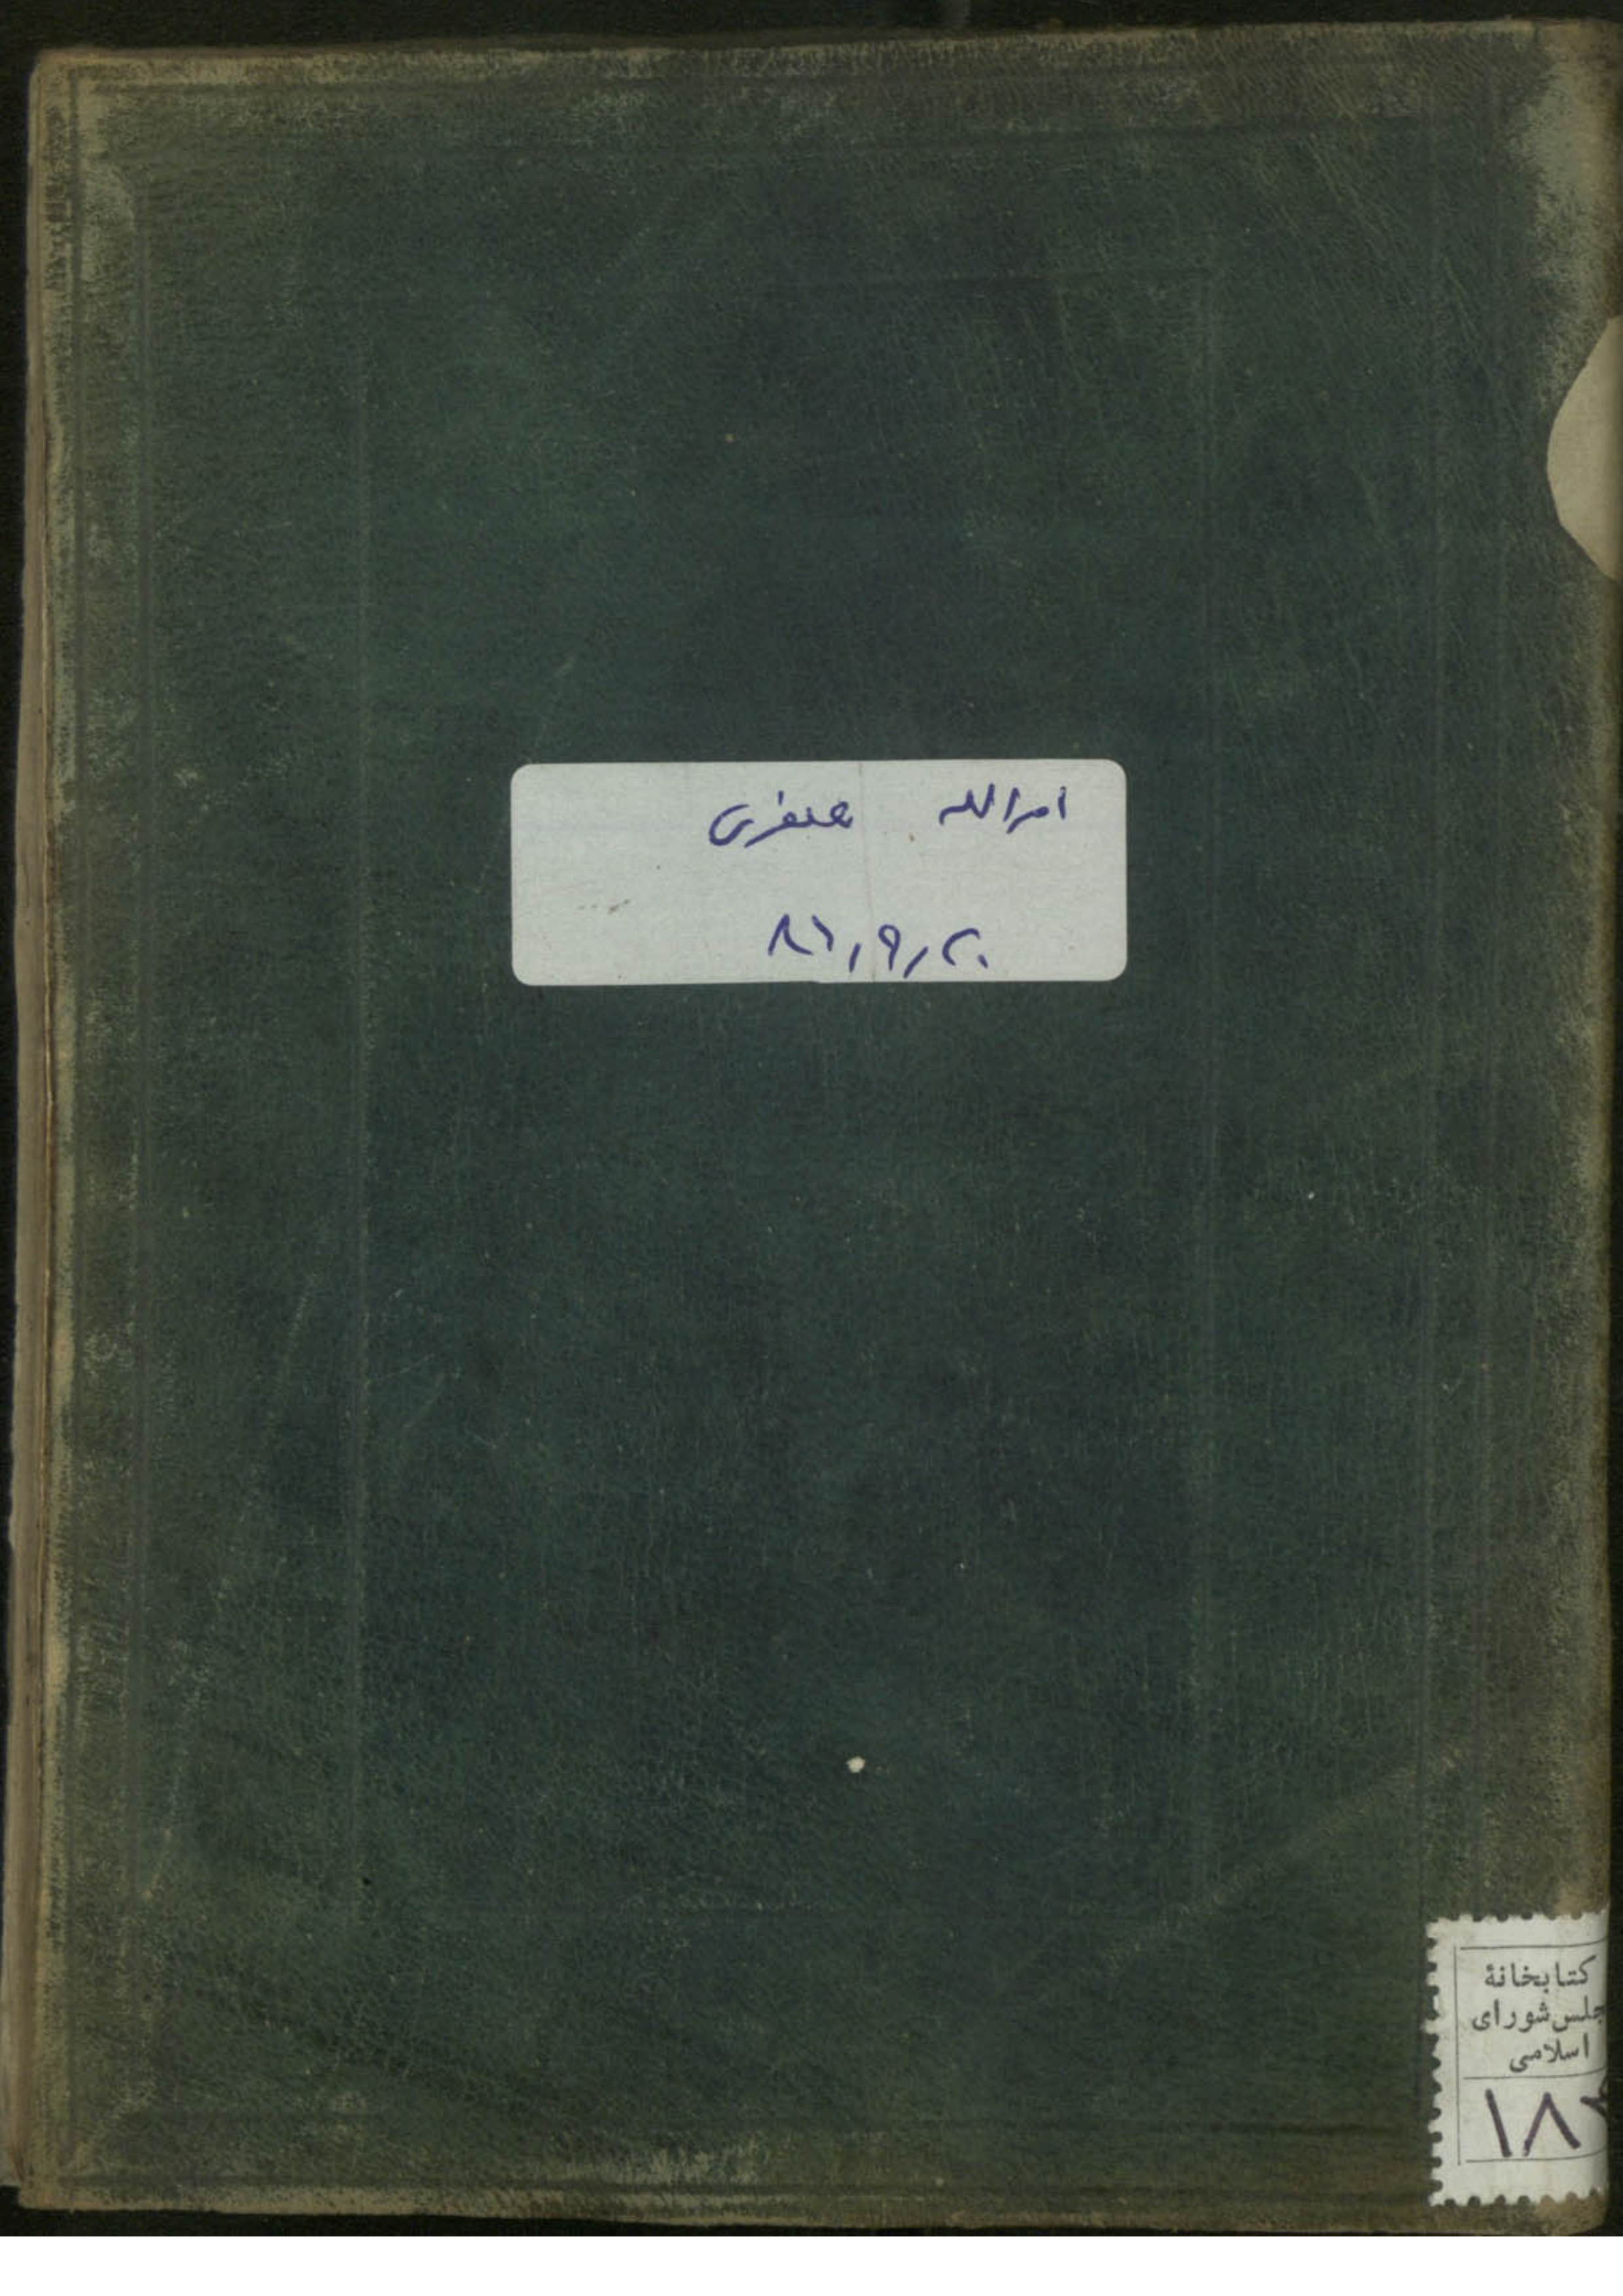 امرالله صفری
۸۶٫۹٫۲۰
کتابخانهٔ
جلس شورای
اسلامی
۱۸